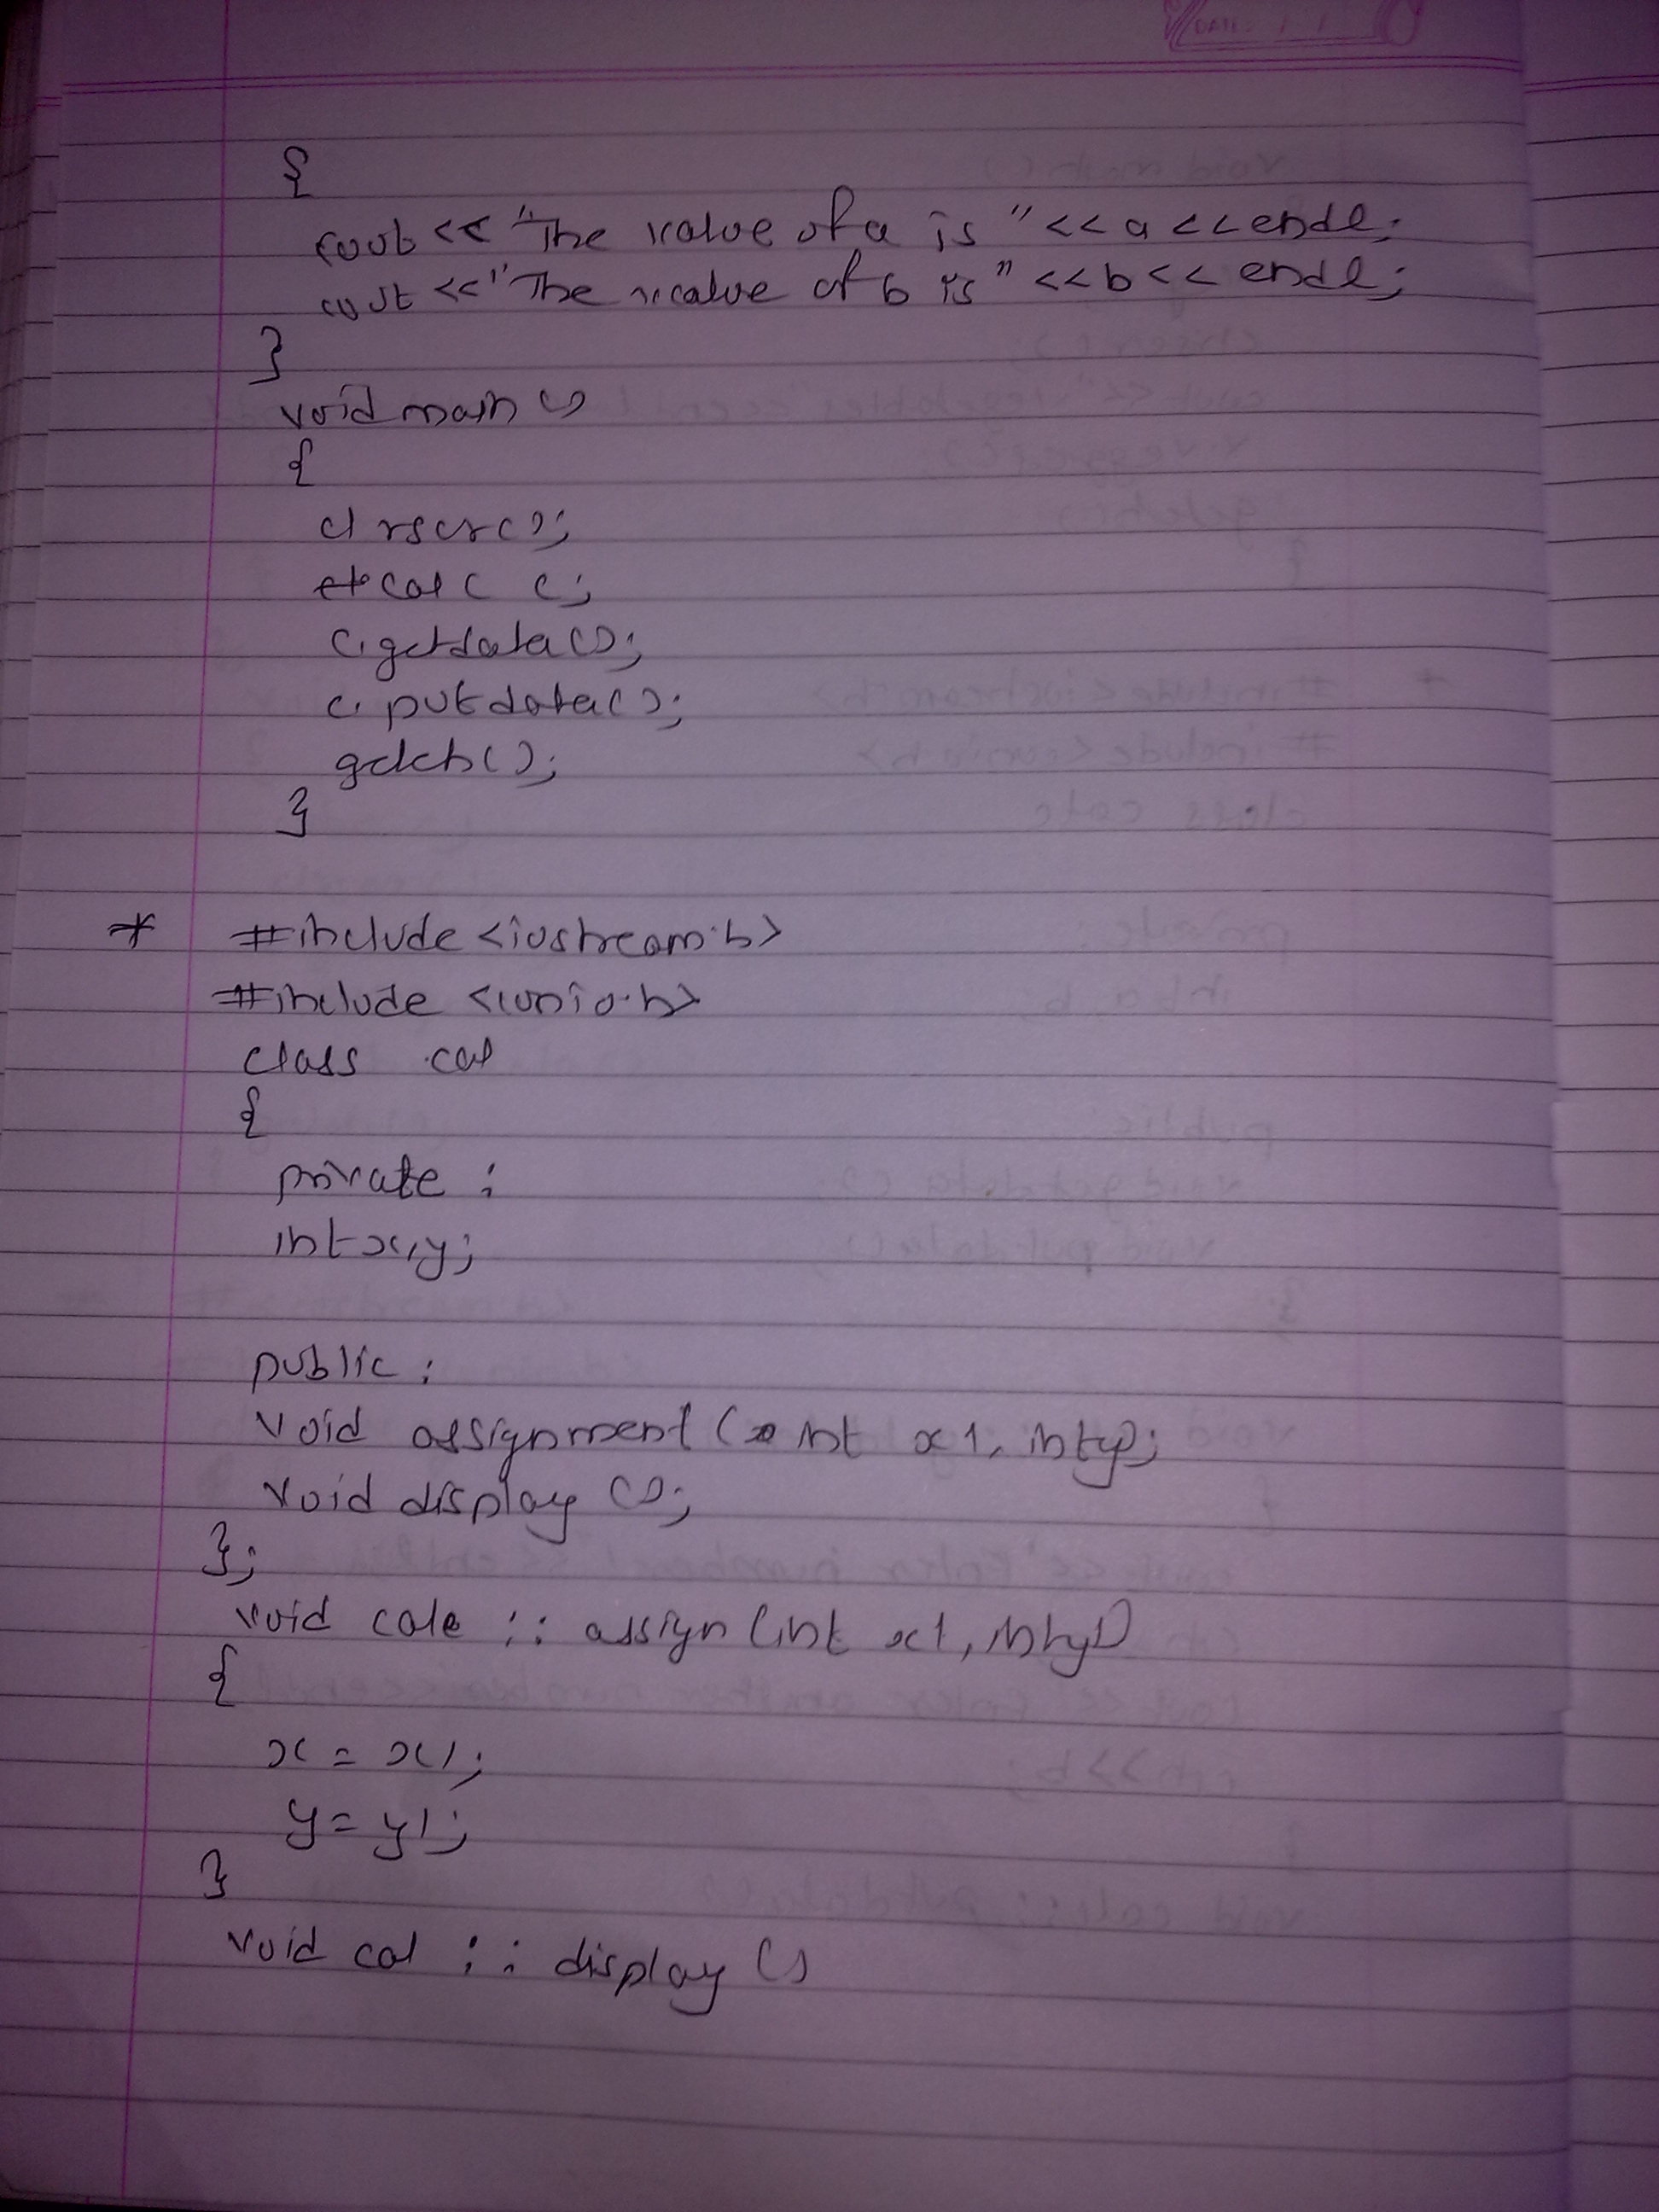 {
cout << "The value of a is " << a << endl;
cout << "The value of b is " << b << endl;
}
void main ()
{
clrscr();
calc c;
c.getdata();
c.putdata();
getch();
}
* #include <iostream.h>
#include <conio.h>
class cal
{
private :
int x,y;
public :
void assignment ( int x1, int y);
void display ();
};
void calc :: assign (int x1, int y1)
{
x = x1;
y = y1;
}
void cal :: display ()